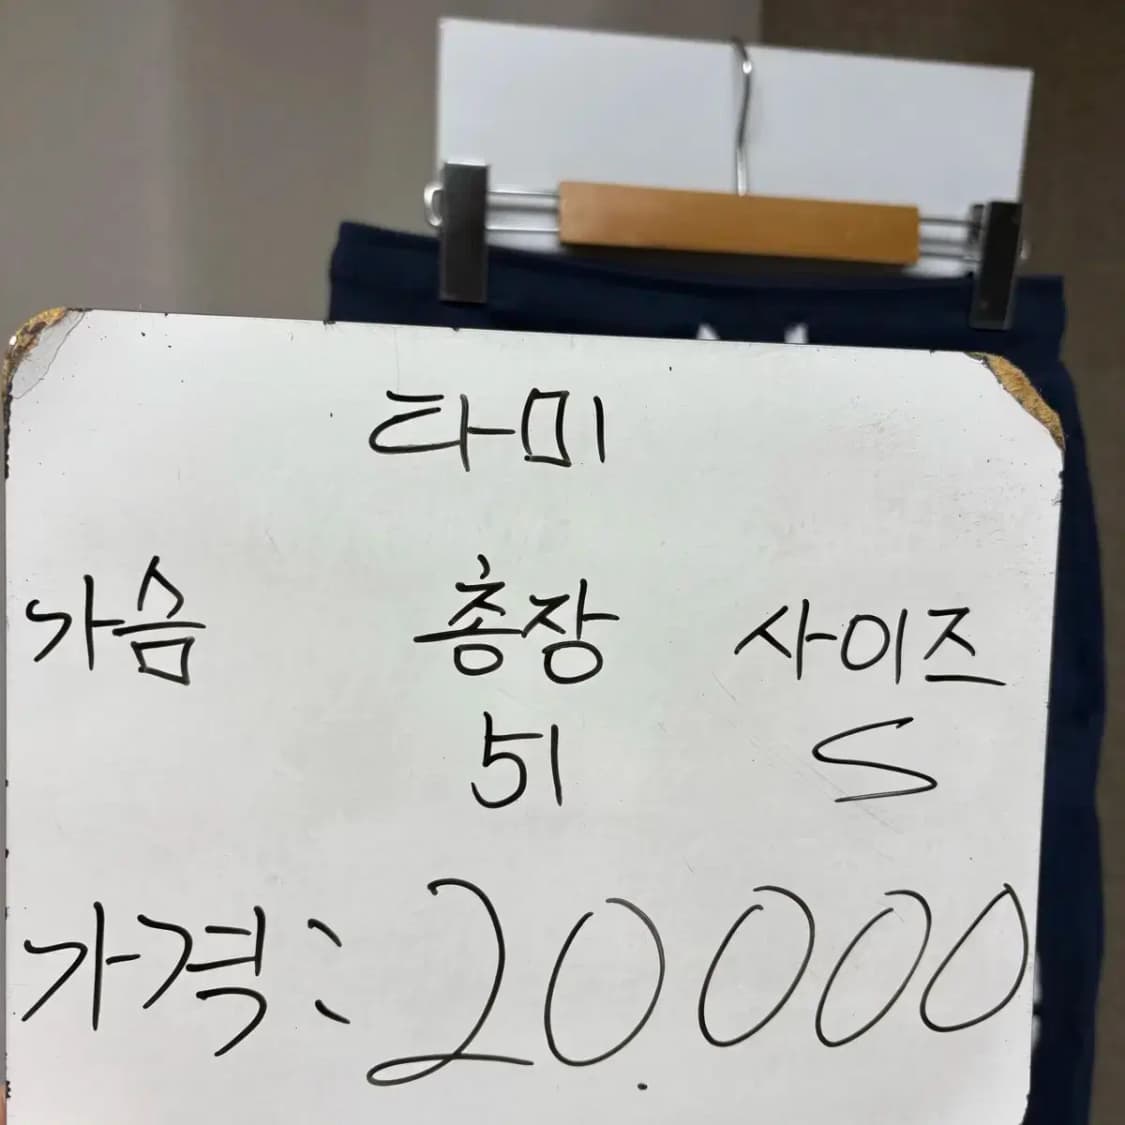 타미
가슴 총장 사이즈
51 S
가격: 20.000